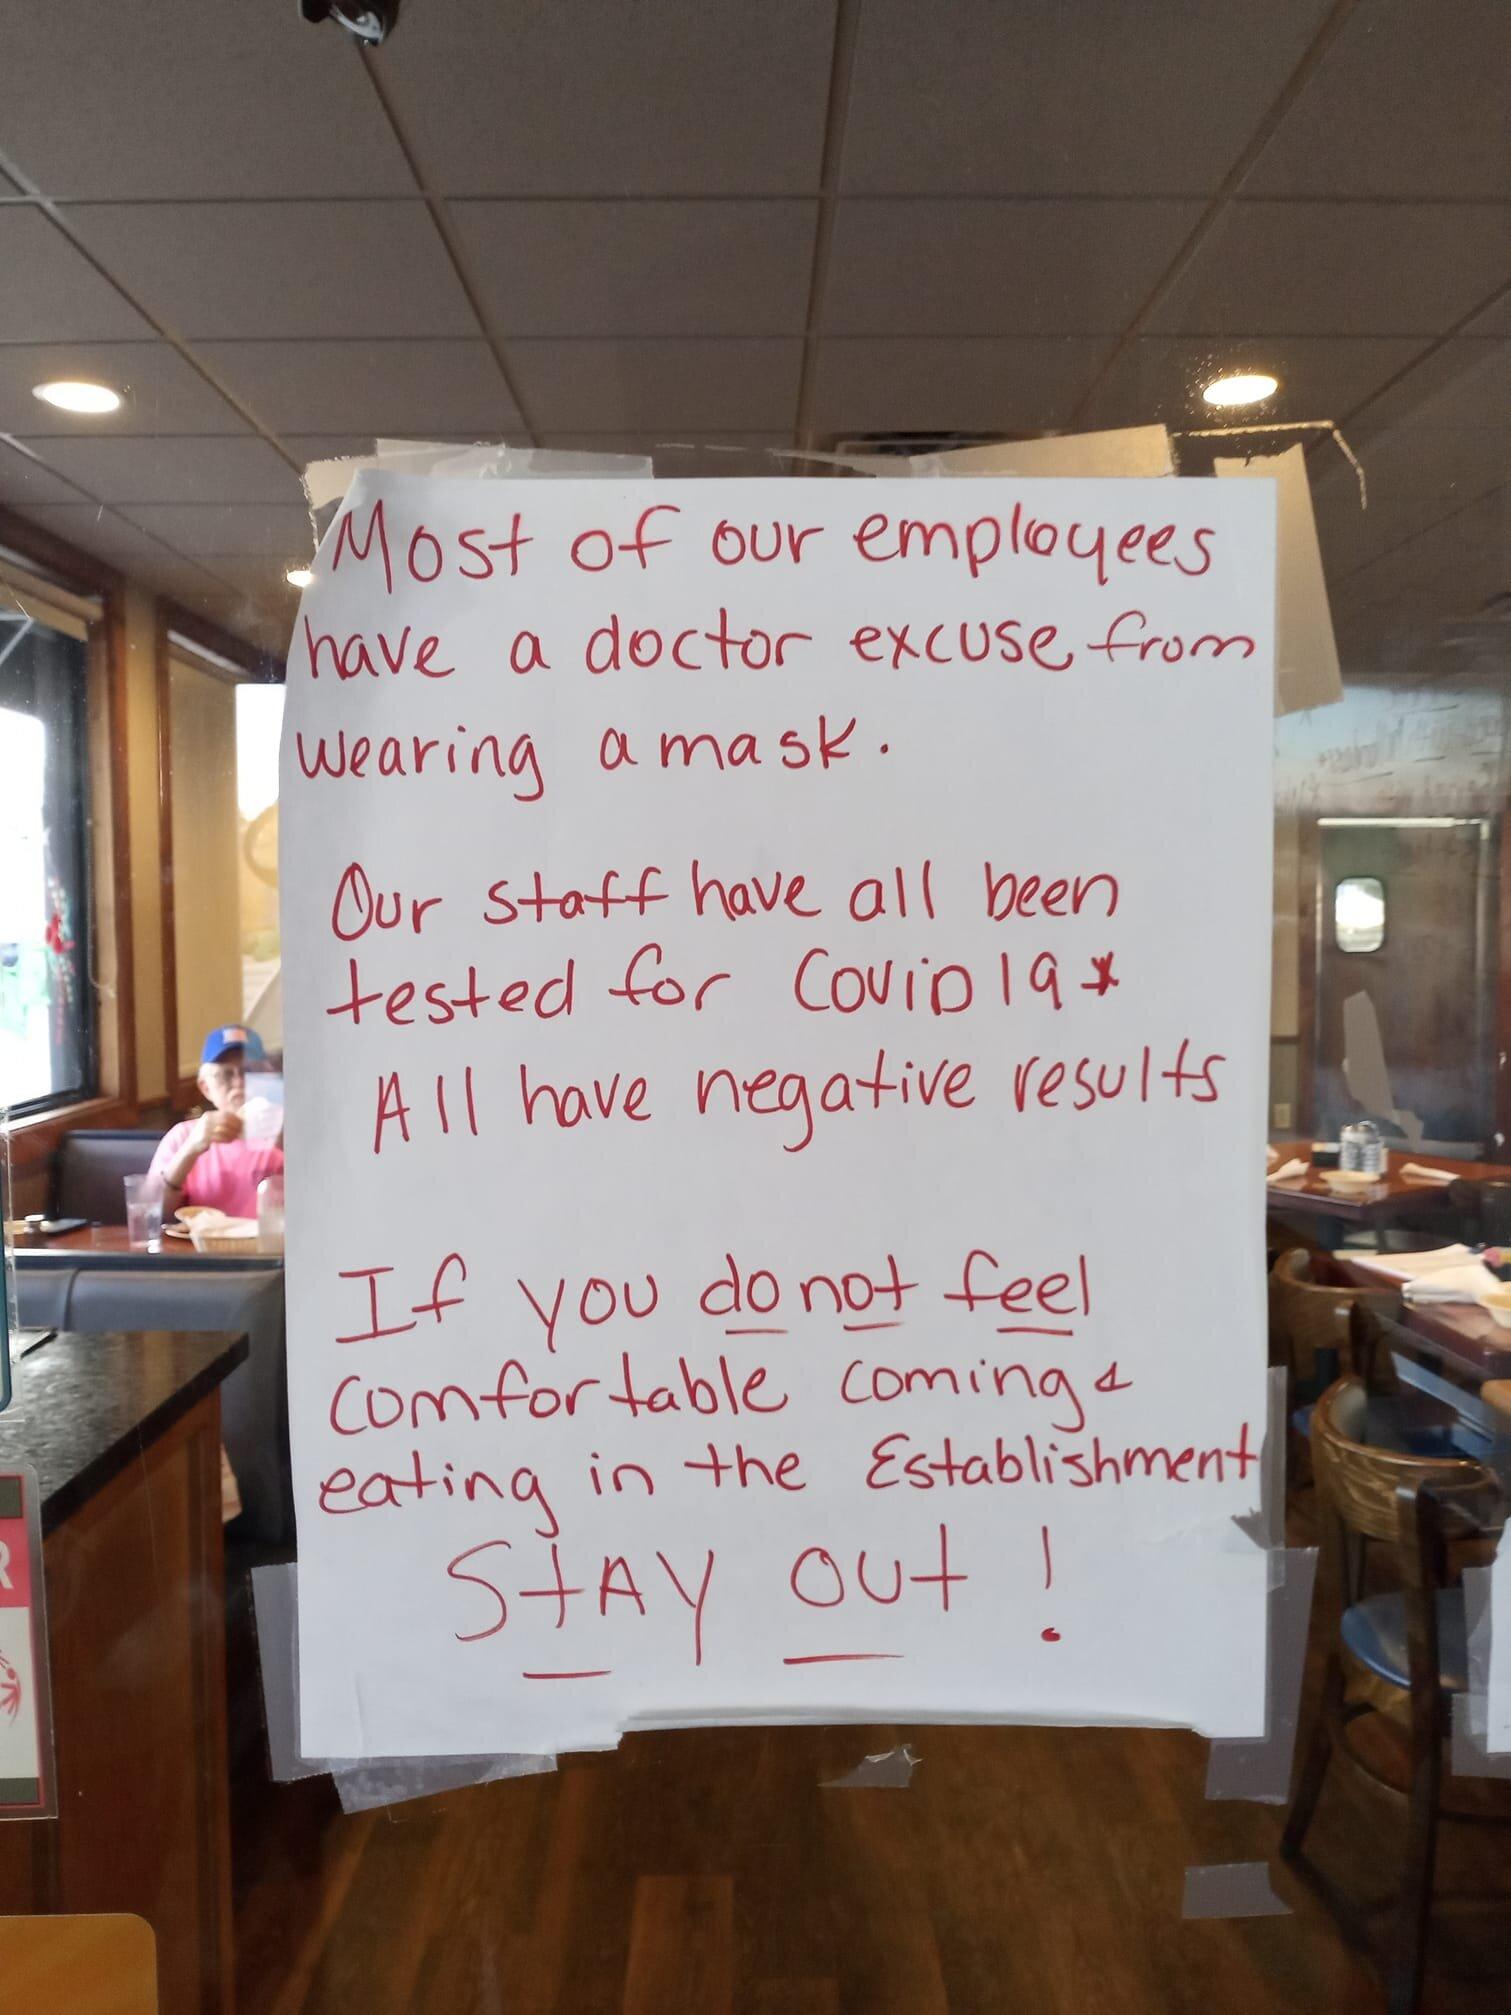 Most of our employees
have a doctor excuse from
wearing a mask.
Our staff have all been
tested for Covid 19*
All have negative results
If you do not feel
comfortable coming &
eating in the Establishment
Stay out !
R